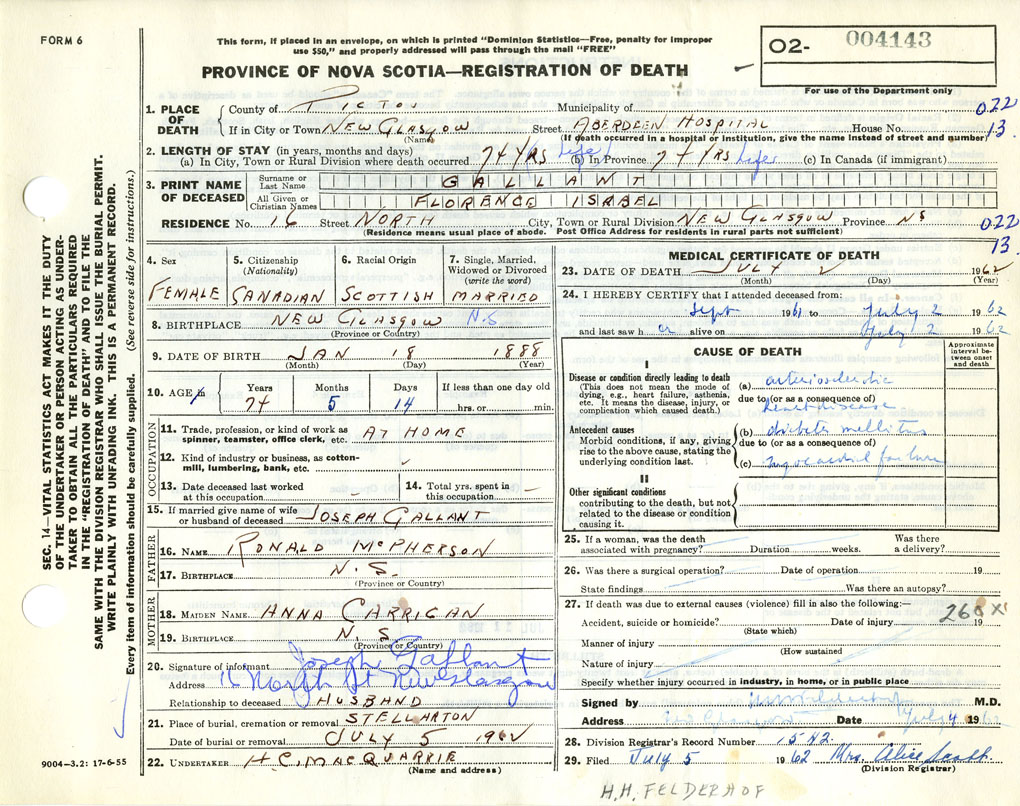 FORM 6
This form, if placed in an envelope, on which is printed "Dominion Statistics—Free, penalty for improper
use $50," and properly addressed will pass through the mail "FREE"
PROVINCE OF NOVA SCOTIA—REGISTRATION OF DEATH
O2- 004143
For use of the Department only
SEC. 14—VITAL STATISTICS ACT MAKES IT THE DUTY
OF THE UNDERTAKER OR PERSON ACTING AS UNDER-
TAKER TO OBTAIN ALL THE PARTICULARS REQUIRED
IN THE "REGISTRATION OF DEATH" AND TO FILE THE
SAME WITH THE DIVISION REGISTRAR WHO SHALL ISSUE THE BURIAL PERMIT.
WRITE PLAINLY WITH UNFADING INK. THIS IS A PERMANENT RECORD.
Every item of information should be carefully supplied. (See reverse side for instructions.)
1. PLACE OF DEATH County of PICTOU Municipality of 022
If in City or Town NEW GLASGOW Street ABERDEEN HOSPITAL House No. 13
(Name) (If death occurred in a hospital or institution, give the name instead of street and number)
2. LENGTH OF STAY (in years, months and days)
(a) In City, Town or Rural Division where death occurred 74 YRS Life (b) In Province 74 YRS Life (c) In Canada (if immigrant)
3. PRINT NAME OF DECEASED Surname or Last Name GALLANT
All Given or Christian Names FLORENCE ISABEL
RESIDENCE No. 16 Street NORTH City, Town or Rural Division NEW GLASGOW Province NS 022
(Residence means usual place of abode. Post Office Address for residents in rural parts not sufficient) 13
4. Sex FEMALE
5. Citizenship (Nationality) CANADIAN
6. Racial Origin SCOTTISH
7. Single, Married, Widowed or Divorced (write the word) MARRIED
8. BIRTHPLACE NEW GLASGOW N.S
(Province or Country)
9. DATE OF BIRTH JAN 18 1888
(Month) (Day) (Year)
10. AGE Years 74 Months 5 Days 14 If less than one day old hrs. or min.
OCCUPATION
11. Trade, profession, or kind of work as spinner, teamster, office clerk, etc. AT HOME
12. Kind of industry or business, as cotton-mill, lumbering, bank, etc.
13. Date deceased last worked at this occupation
14. Total yrs. spent in this occupation
15. If married give name of wife or husband of deceased JOSEPH GALLANT
FATHER
16. NAME RONALD McPHERSON
17. BIRTHPLACE N.S.
(Province or Country)
MOTHER
18. MAIDEN NAME ANNA CARRIGAN
19. BIRTHPLACE N.S.
(Province or Country)
20. Signature of informant Joseph Gallant
Address 16 North St New Glasgow
Relationship to deceased HUSBAND
21. Place of burial, cremation or removal STELLARTON
Date of burial or removal JULY 5 1962
22. UNDERTAKER H.C. MACQUARRIE
(Name and address)
9004-3.2: 17-6-55
MEDICAL CERTIFICATE OF DEATH
23. DATE OF DEATH JULY 2 1962
(Month) (Day) (Year)
24. I HEREBY CERTIFY that I attended deceased from:
Sept 1961 to July 2 1962
and last saw her alive on July 2 1962
CAUSE OF DEATH
Approximate interval between onset and death
I
Disease or condition directly leading to death
(This does not mean the mode of dying, e.g., heart failure, asthenia, etc. It means the disease, injury, or complication which caused death.)
(a) arteriosclerotic
due to (or as a consequence of)
heart disease
Antecedent causes
Morbid conditions, if any, giving rise to the above cause, stating the underlying condition last.
(b) diabetes mellitus
due to (or as a consequence of)
(c) myocardial failure
II
Other significant conditions
contributing to the death, but not related to the disease or condition causing it.
25. If a woman, was the death associated with pregnancy? Duration weeks. Was there a delivery?
26. Was there a surgical operation? Date of operation 19
State findings Was there an autopsy?
27. If death was due to external causes (violence) fill in also the following:—
Accident, suicide or homicide? Date of injury 19
(State which)
Manner of injury
(How sustained
Nature of injury
Specify whether injury occurred in industry, in home, or in public place
Signed by M.D.
Address Date July 4 1962
28. Division Registrar's Record Number 1542
29. Filed July 5 1962 Mrs. Alice
(Division Registrar)
H.H. FELDERHOF